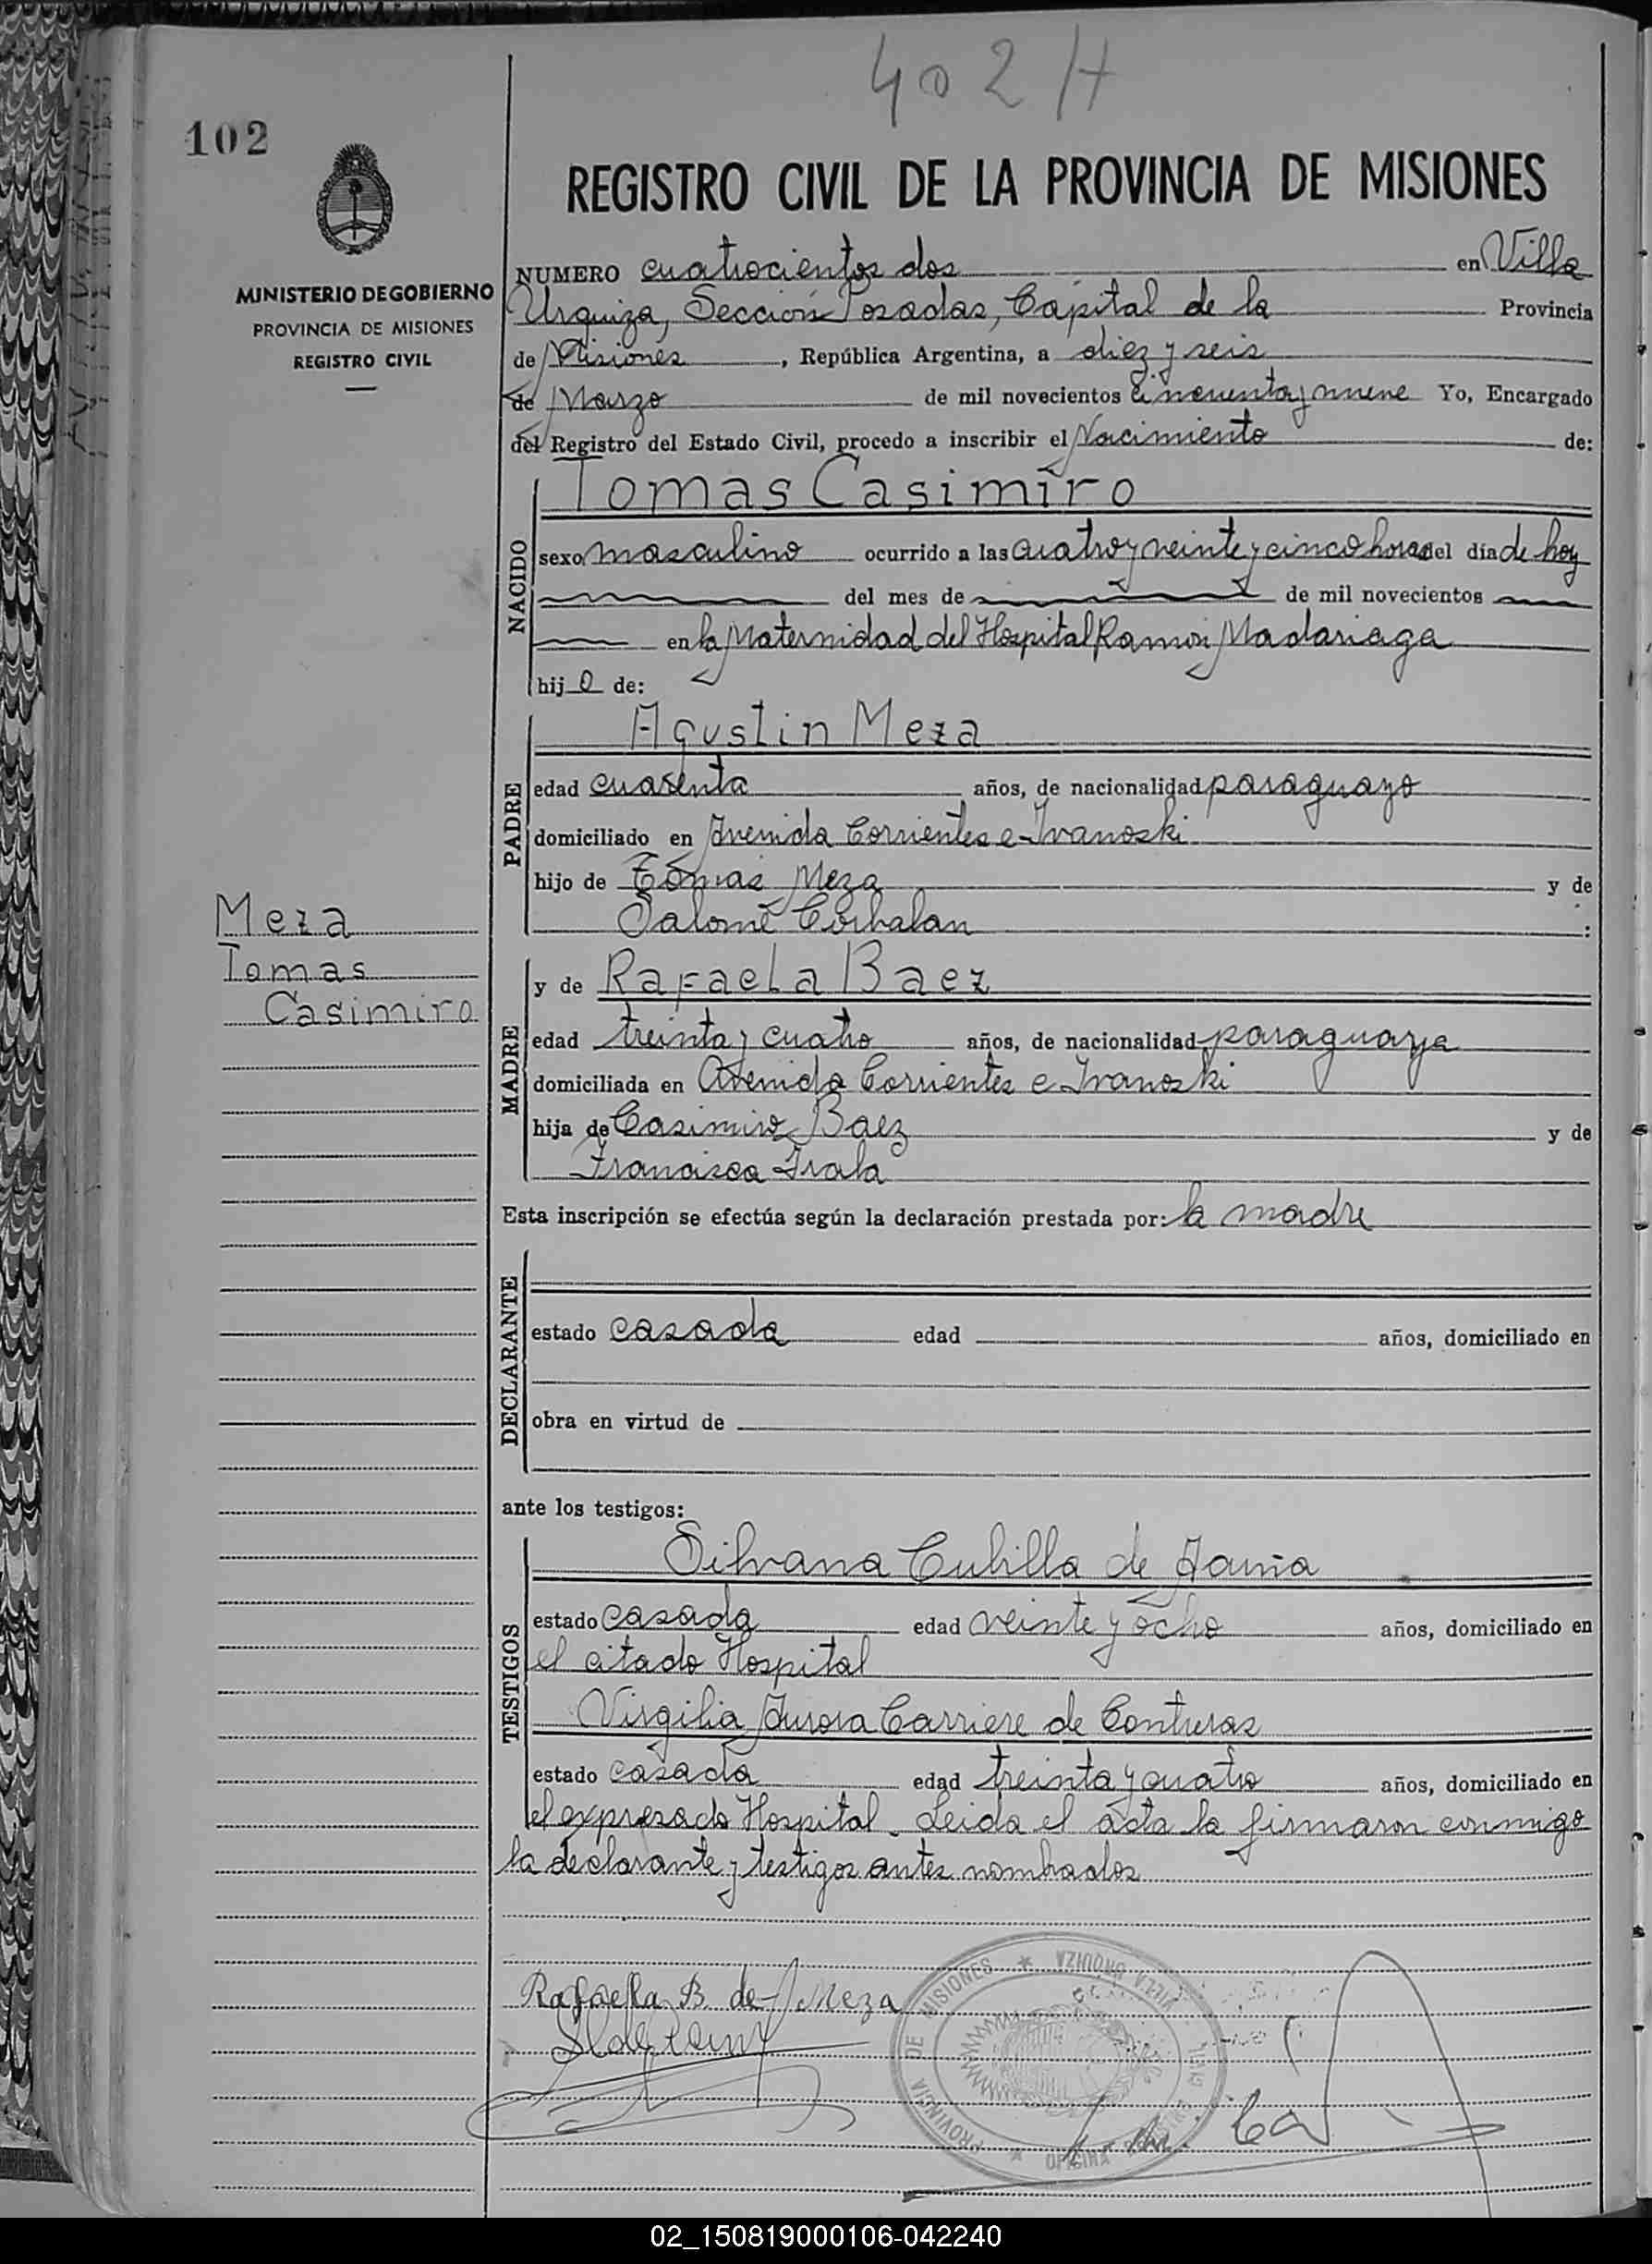 402 H
102
REGISTRO CIVIL DE LA PROVINCIA DE MISIONES
MINISTERIO DE GOBIERNO
PROVINCIA DE MISIONES
REGISTRO CIVIL
NUMERO cuatrocientos dos en Villa
Urquiza, Sección Posadas, Capital de la Provincia
de Misiones, República Argentina, a diez y seis
de Marzo de mil novecientos cincuenta y nueve Yo, Encargado
del Registro del Estado Civil, procedo a inscribir el Nacimiento de:
NACIDO
Tomas Casimiro
sexo masculino ocurrido a las cuatro y veinte y cinco horas del día de hoy
del mes de de mil novecientos
en la Maternidad del Hospital Ramón Madariaga
hijo de:
PADRE
Agustin Meza
edad cuarenta años, de nacionalidad paraguayo
domiciliado en Avenida Corrientes e Ivanoski
hijo de Tomás Meza y de
Salomé Corbalan :
Meza
Tomas
Casimiro
MADRE
y de Rafaela Baez
edad treinta y cuatro años, de nacionalidad paraguaya
domiciliada en Avenida Corrientes e Ivanoski
hija de Casimiro Baez y de
Francisca Irala
Esta inscripción se efectúa según la declaración prestada por: la madre
DECLARANTE
estado casada edad años, domiciliado en
obra en virtud de
ante los testigos:
TESTIGOS
Silvana Cubilla de
estado casada edad veinte y ocho años, domiciliado en
el citado Hospital
Virgilia Aurora Carriere de Contreras
estado casada edad treinta y cuatro años, domiciliado en
el expresado Hospital. Leida el acta la firmaron conmigo
la declarante y testigos antes nombrados
Rafaela B. de Meza
PROVINCIA DE MISIONES ★ VILLA URQUIZA ★ OFICINA
02_150819000106-042240